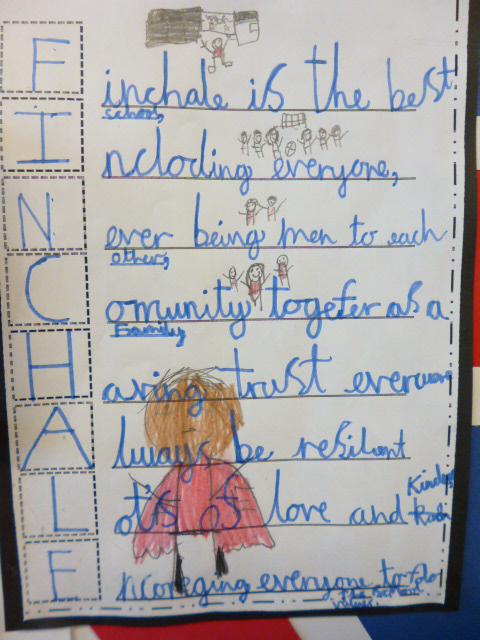 F inchale is the best
school,
I ncloding everyone,
N ever being men to each
other,
C omunity togefer as a
Family
H aving trust
A lways be resilient
L ot's of love and Kindness
E ncoreging everyone to
The school
values.